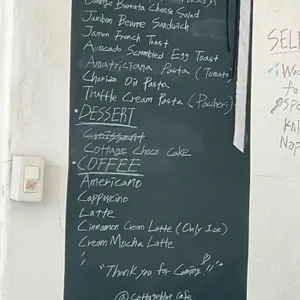 Orange Burrata Cheese Salad
Jambon Beurre Sandwich
Jamon French Toast
Avocado Scrambled Egg Toast
Amatriciana Pasta (Tomato)
Chorizo Oil Pasta
Truffle Cream Pasta (Pacheri)
• DESSERT
Croissant
Cottage Choco Cake
• COFFEE
Americano
Cappucino
Latte
Cinnamon Cream Latte (Only Ice)
Cream Mocha Latte
"Thank you for Coming"
@cottageblue_cafe
SEL
to